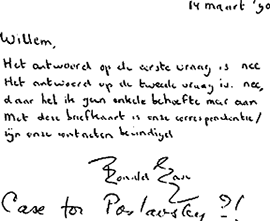 14 maart '90
Willem,
Het antwoord op de eerste vraag is nee
Het antwoord op de tweede vraag is: nee,
daar heb ik geen enkele behoefte meer aan
Met deze briefkaart is onze correspondentie/
zijn onze contacten beëindigd
Case for
?!